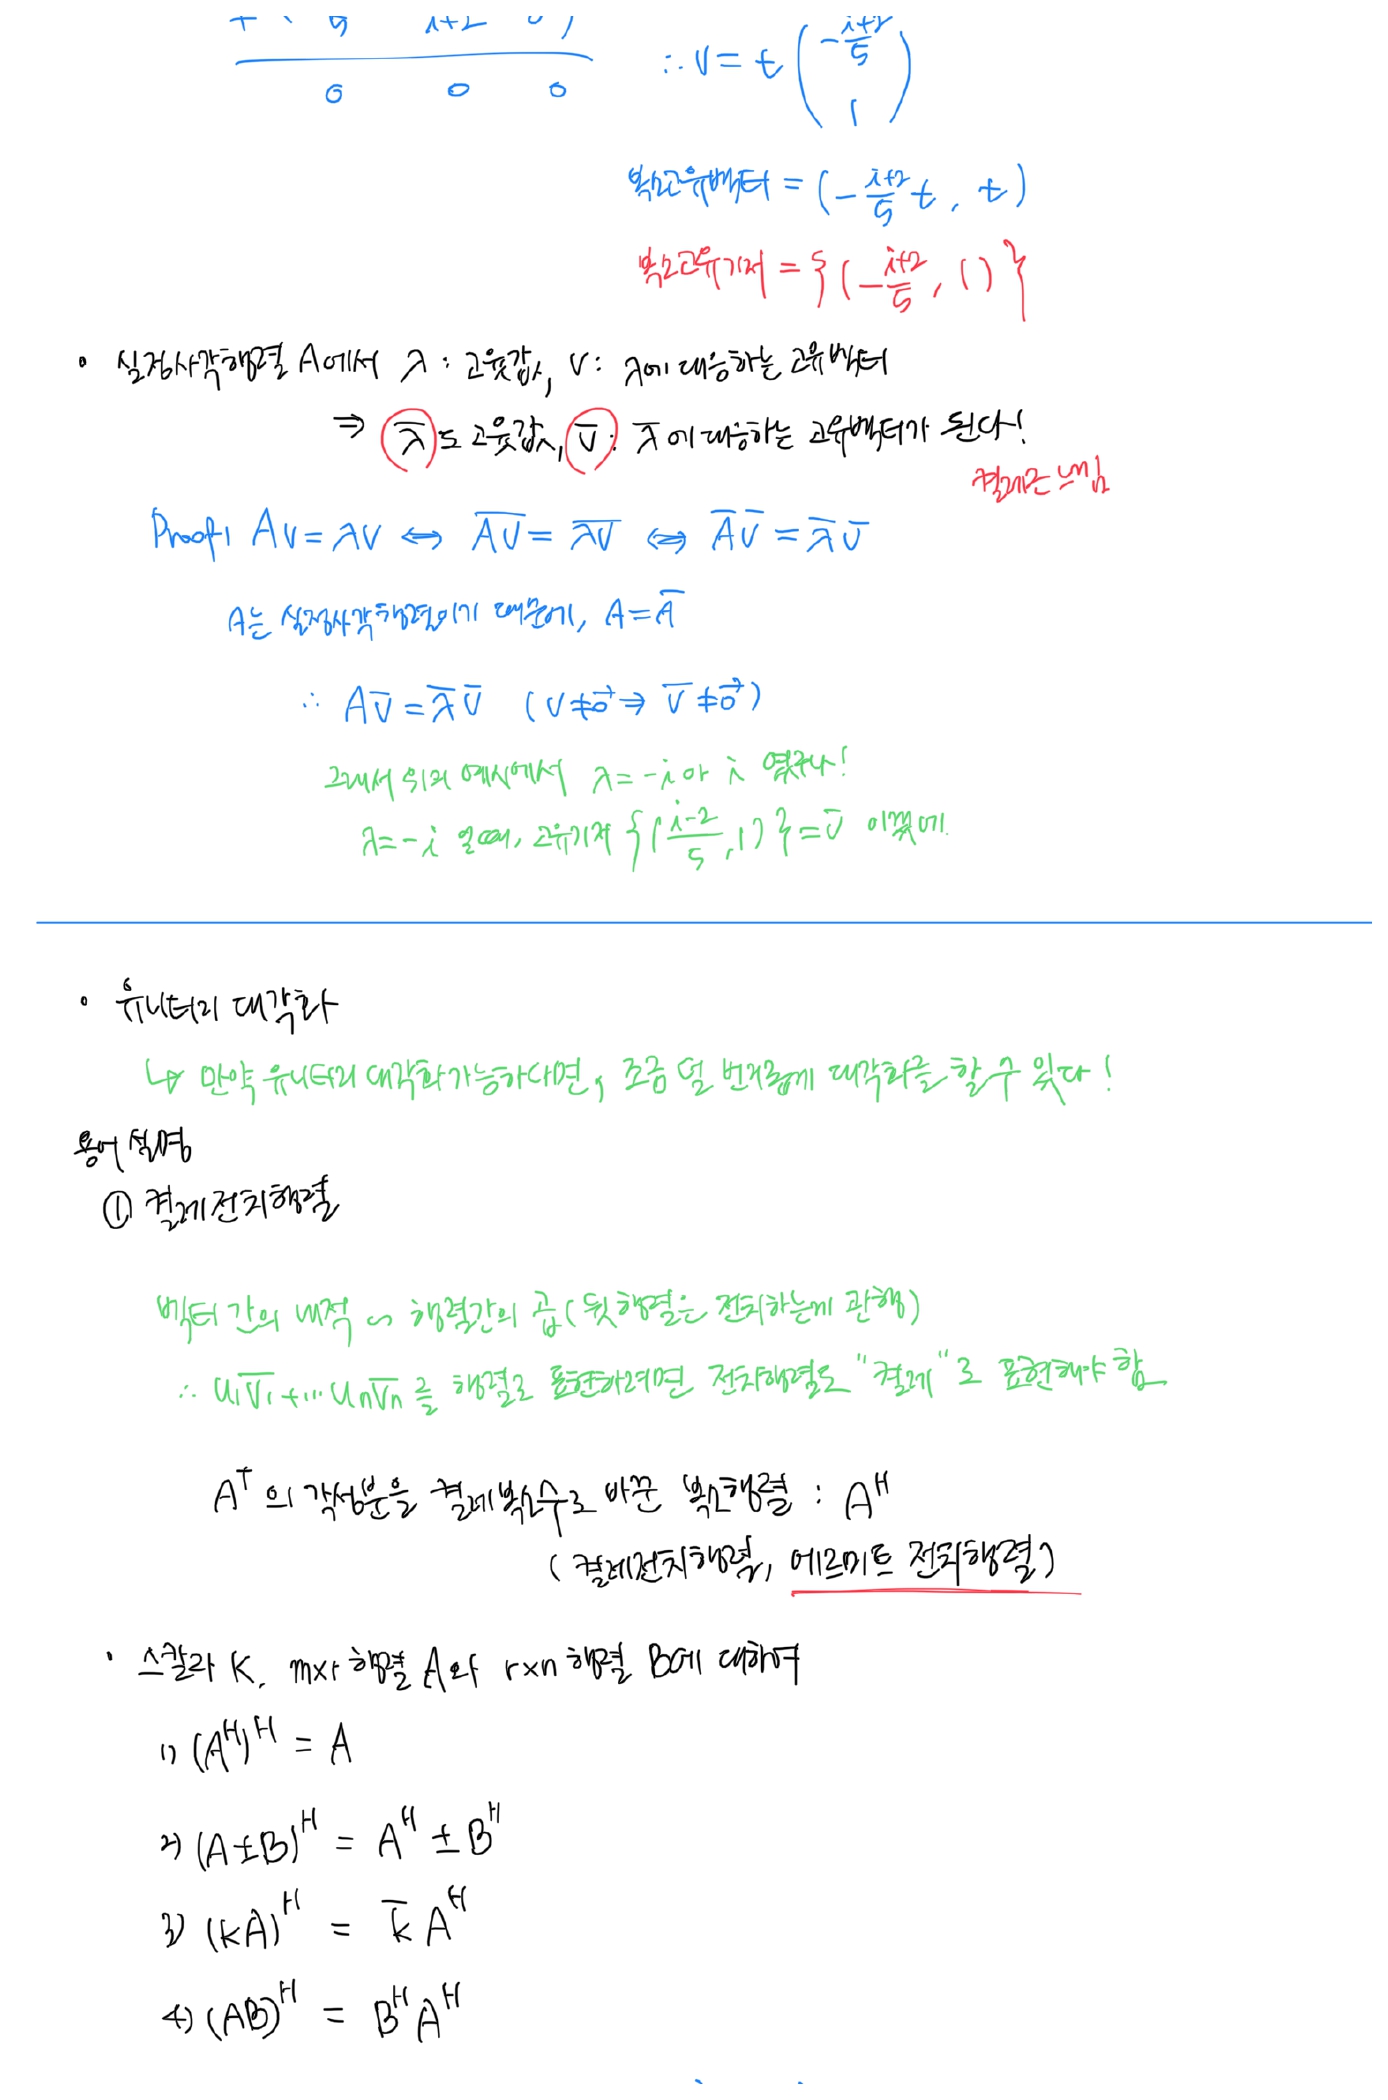 5 i+2 0 )
0 0 0
∴ v = t ( -(i+2)/5
1 )
복소고유벡터 = (-(i+2)/5 t, t)
복소고유기저 = {(-(i+2)/5, 1)}
• 실정사각행렬 A에서 λ : 고윳값, v : λ에 대응하는 고유벡터
⇒ λ̅도 고윳값, v̅ : λ̅에 대응하는 고유벡터가 된다!
켤레근 느낌
Proof) Av = λv ⇔ A̅v̅ = λ̅v̅ ⇔ A̅ v̅ = λ̅ v̅
A는 실정사각행렬이기 때문에, A = A̅
∴ Av̅ = λ̅ v̅ (v ≠ 0⃗ ⇒ v̅ ≠ 0⃗)
그래서 위의 예시에서 λ = -i or i 였구나!
λ = -i 일때, 고유기저 {((i-2)/5, 1)} = v̅ 이겠네.
• 유니터리 대각화
↳ 만약 유니터리 대각화가능하다면, 조금 덜 번거롭게 대각화를 할 수 있다!
용어 설명
① 켤레전치행렬
벡터 간의 내적 ∽ 행렬간의 곱 (뒷 행렬은 전치하는게 관행)
∴ u₁v̅₁ + ⋯ uₙv̅ₙ 를 행렬로 표현하려면 전치행렬도 "켤레"로 표현해야 함
Aᵀ 의 각성분을 켤레복소수로 바꾼 복소행렬 : Aᴴ
(켤레전치행렬, 에르미트 전치행렬)
• 스칼라 K, m×r 행렬 A와 r×n 행렬 B에 대하여
1) (Aᴴ)ᴴ = A
2) (A±B)ᴴ = Aᴴ ± Bᴴ
3) (kA)ᴴ = k̅ Aᴴ
4) (AB)ᴴ = BᴴAᴴ